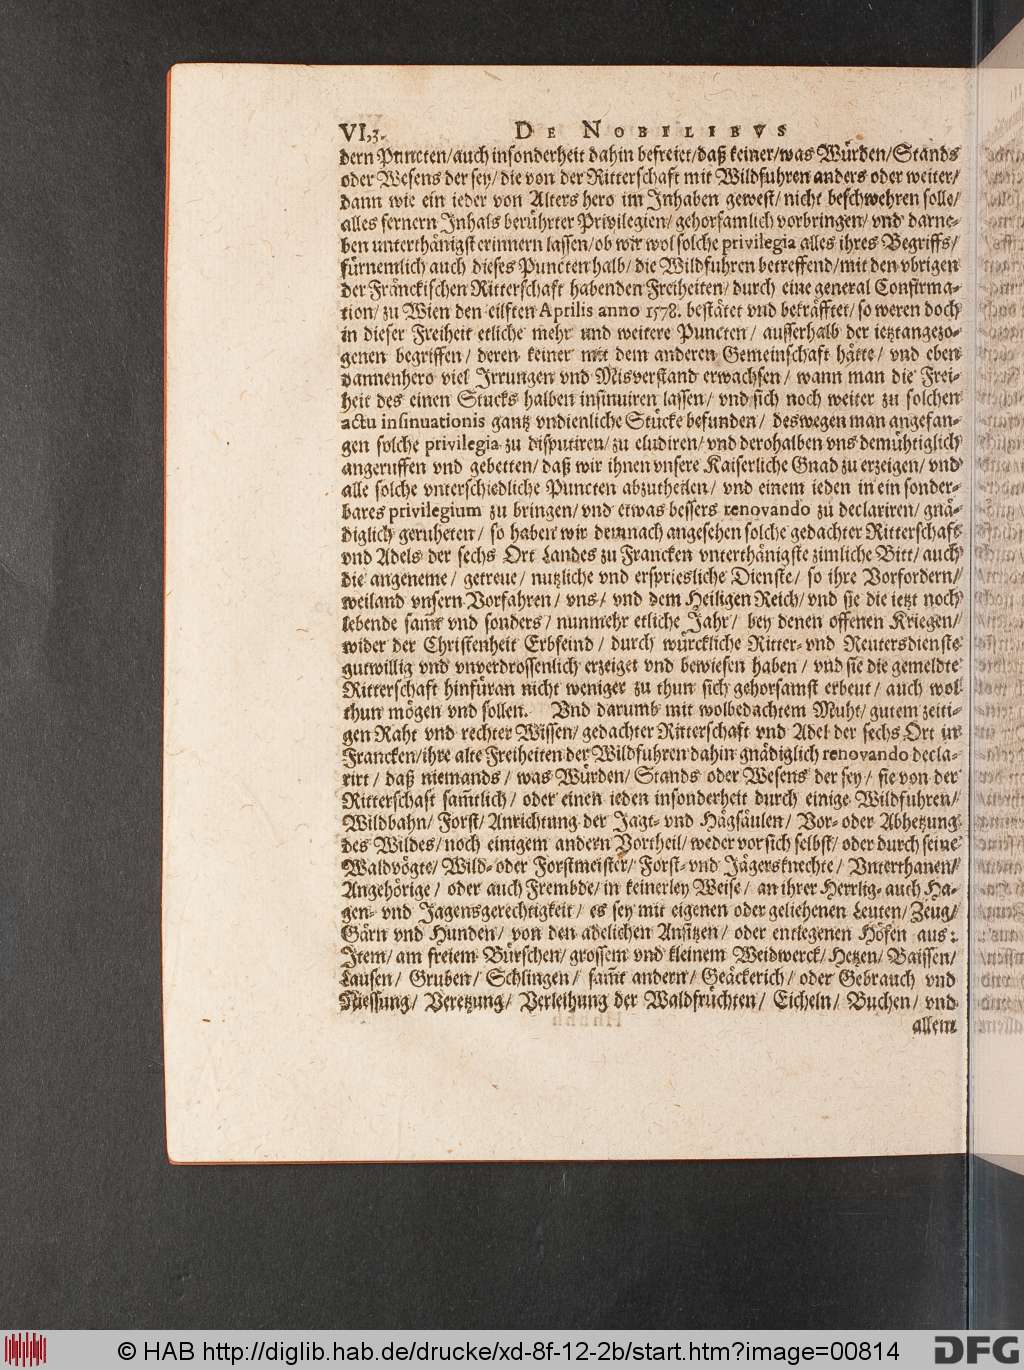 VI,3. DE NOBILIBVS
dern Puncten/auch insonderheit dahin befreiet/daß keiner/was Würden/Stands
oder Wesens der sey/die von der Ritterschaft mit Wildfuhren anders oder weiter/
dann wie ein ieder von Alters hero im Inhaben gewest/nicht beschwehren solle/
alles fernern Inhals berührter Privilegien/gehorsamlich vorbringen/vnd darne-
ben unterthånigst erinnern lassen/ob wir wol solche privilegia alles ihres Begriffs/
fürnemlich auch dieses Puncten halb/die Wildfuhren betreffend/mit den vbrigen
der Frånckischen Ritterschaft habenden Freiheiten/durch eine general Confirma-
tion/zu Wien den eilften Aprilis anno 1578. beståtet vnd bekråfftet/so weren doch
in dieser Freiheit etliche mehr und weitere Puncten/ausserhalb der ietztangezo-
genen begriffen/deren keiner mit dem anderen Gemeinschaft håtte/vnd eben
dannenhero viel Irrungen vnd Misverstand erwachsen/wann man die Frei-
heit des einen Stucks halben insinuiren lassen/vnd sich noch weiter zu solchen
actu insinuationis gantz vndienliche Stücke befunden/deswegen man angefan-
gen solche privilegia zu disputiren/zu eludiren/vnd derohalben vns demühtiglich
angeruffen vnd gebetten/daß wir ihnen vnsere Kaiserliche Gnad zu erzeigen/vnd
alle solche vnterschiedliche Puncten abzutheilen/vnd einem ieden in ein sonder-
bares privilegium zu bringen/vnd etwas bessers renovando zu declariren/gnå-
diglich geruheten/so haben wir demnach angesehen solche gedachter Ritterschaft
vnd Adels der sechs Ort Landes zu Francken vnterthånigste zimliche Bitt/auch
die angeneme/getreue/nutzliche vnd erspriesliche Dienste/so ihre Vorfordern/
weiland vnsern Vorfahren/vns/vnd dem Heiligen Reich/vnd sie die ietzt noch
lebende sam̃t vnd sonders/nunmehr etliche Jahr/bey denen offenen Kriegen/
wider der Christenheit Erbfeind/durch würckliche Ritter-vnd Reutersdienste
gutwillig vnd vnverdrossenlich erzeiget vnd bewiesen haben/vnd sie die gemeldte
Ritterschaft hinfüran nicht weniger zu thun sich gehorsamst erbeut/auch wol
thun mögen vnd sollen. Vnd darumb mit wolbedachtem Muht/gutem zeiti-
gen Raht vnd rechter Wissen/gedachter Ritterschaft vnd Adel der sechs Ort in
Francken/ihre alte Freiheiten der Wildfuhren dahin gnådiglich renovando decla-
rirt/daß niemands/was Würden/Stands oder Wesens der sey/sie von der
Ritterschaft sam̃tlich/oder einen ieden insonderheit durch einige Wildfuhren/
Wildbahn/Forst/Anrichtung der Jagt-vnd Hågsåulen/Vor-oder Abhetzung
des Wildes/noch einigem andern Vortheil/weder vor sich selbst/oder durch seine
Waldvögte/Wild-oder Forstmeister/Forst-vnd Jågersknechte/Vnterthanen/
Angehörige/oder auch Frembde/in keinerley Weise/an ihrer Herrlig-auch Ha-
gen-vnd Jagensgerechtigkeit/es sey mit eigenen oder geliehenen Leuten/Zeug/
Gårn vnd Hunden/von den adelichen Ansitzen/oder entlegenen Höfen aus:
Item/am freiem Bürschen/grossem vnd kleinem Weidwerck/Hetzen/Baissen/
Lausen/Gruben/Schlingen/sam̃t andern/Geåckerich/oder Gebrauch vnd
Niessung/Veretzung/Verleihung der Waldfrüchten/Eicheln/Buchen/vnd
allem
© HAB http://diglib.hab.de/drucke/xd-8f-12-2b/start.htm?image=00814
DFG